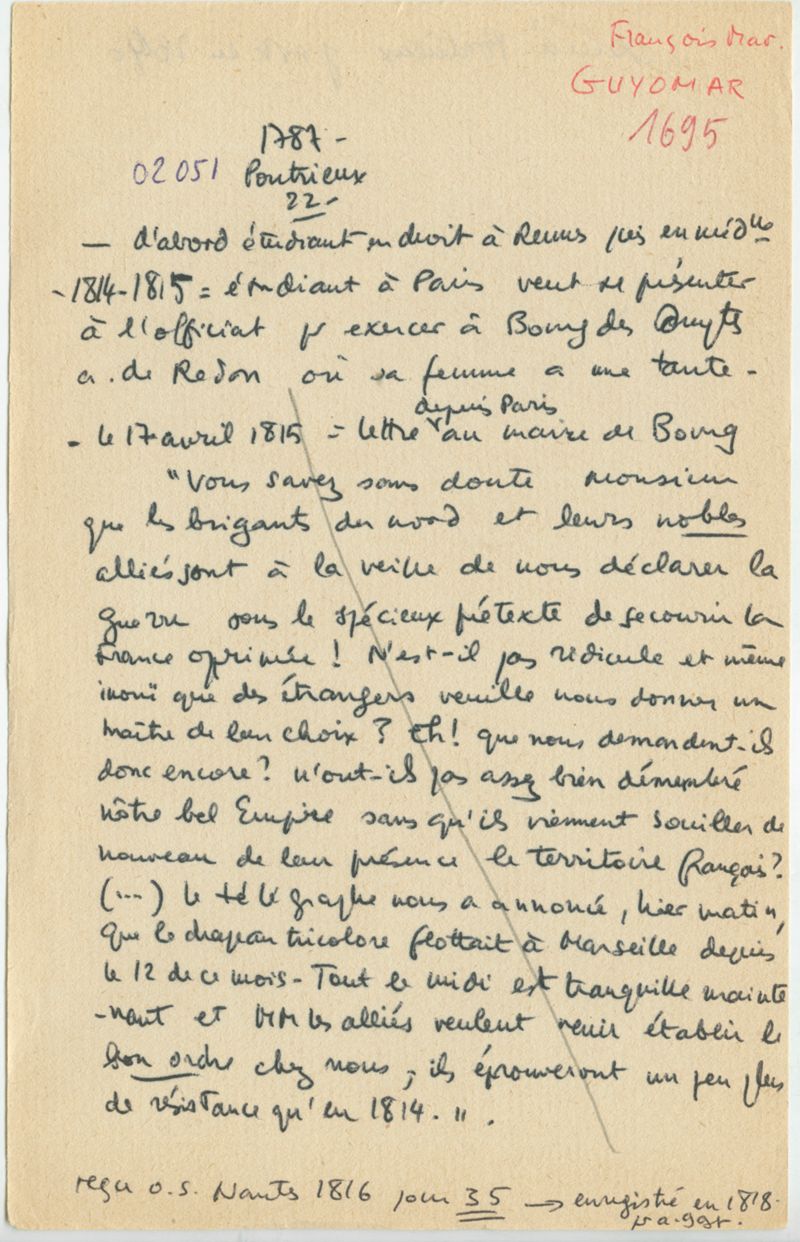 François Mar.
GUYOMAR
1695
1787 -
02051 Pontrieux
22 -
— d'abord étudiant en droit à Rennes puis en méd
- 1814-1815 = étudiant à Paris veut se présenter
à l'officiat pr exercer à Bourg des Comptes
a. de Redon où sa femme a une tante -
depuis Paris
- le 17 avril 1815 = lettre au maire de Bourg
"Vous savez sans doute monsieur
que les brigants du nord et leurs nobles
alliés sont à la veille de nous déclarer la
guerre sous le spécieux prétexte de secourir la
France oprimée ! N'est-il pas ridicule et même
inouï que des étrangers veuille nous donner un
maître de leur choix ? Eh ! que nous demandent-ils
donc encore ? n'ont-ils pas assez bien démembré
nôtre bel Empire sans qu'ils viennent souiller de
nouveau de leur présence le territoire français ?
(...) le télégraphe nous a annoncé, hier matin,
que le drapeau tricolore flottait à Marseille depuis
le 12 de ce mois - Tout le midi est tranquille mainte
-nant et MM les alliés veulent venir établir le
bon ordre chez nous, ils éprouveront un peu plus
de résistance qu'en 1814. " .
reçu o.s. Nantes 1816 pour 35 → enregistré en 1818.